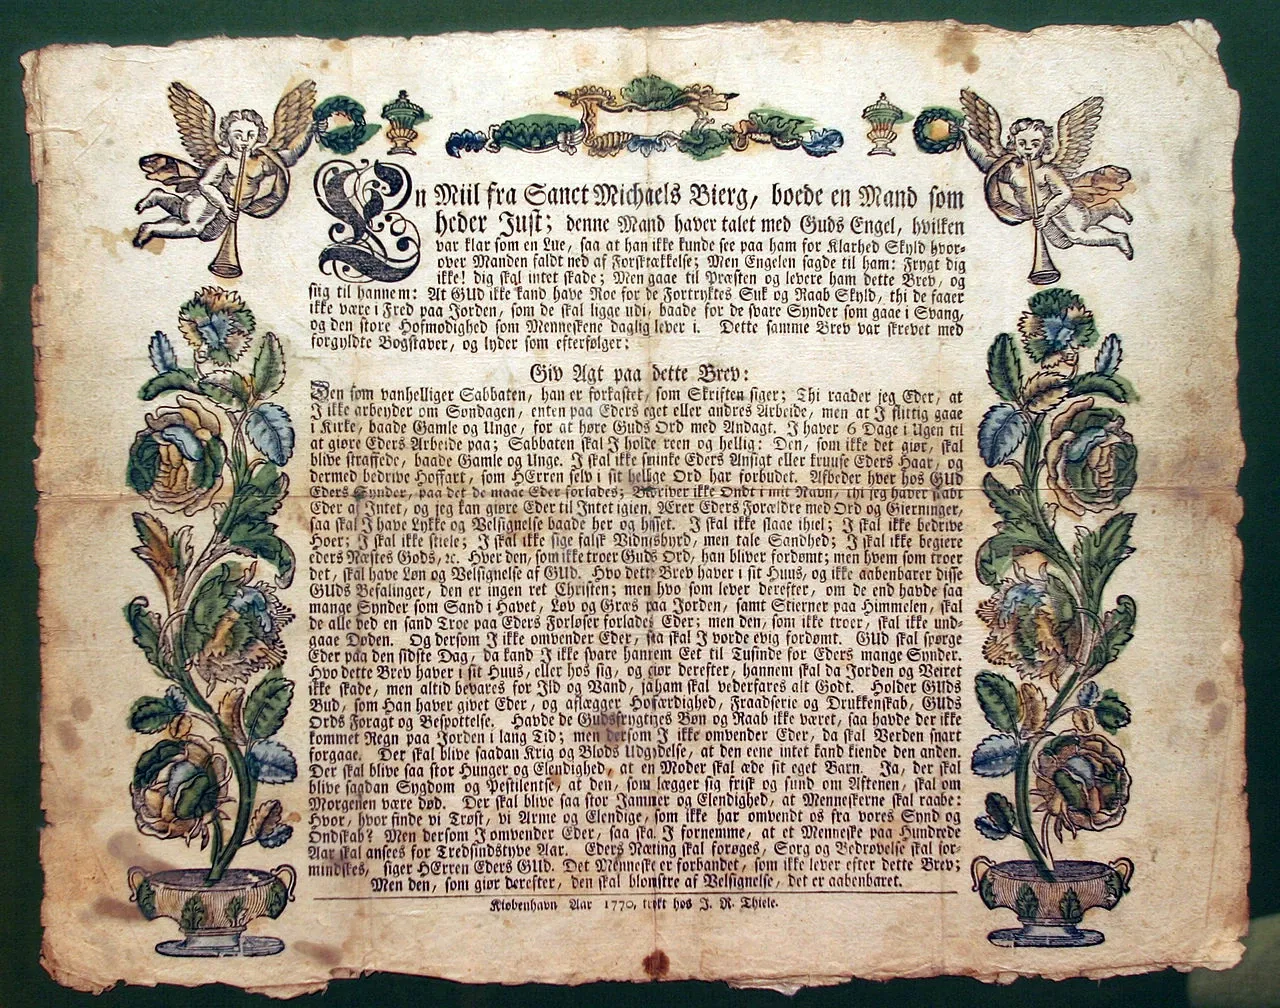 En Miil fra Sanct Michaels Bierg, boede en Mand som
heder Just; denne Mand haver talet med Guds Engel, hvilken
var klar som en Lue, saa at han ikke kunde see paa ham for Klarhed Skyld hvor-
over Manden faldt ned af Forskrækkelse; Men Engelen sagde til ham: Frygt dig
ikke! dig skal intet skade; Men gaae til Præsten og levere ham dette Brev, og
siig til hannem: At GUD ikke kand have Roe for de Fortryktes Suk og Raab Skyld, thi de faaer
ikke være i Fred paa Jorden, som de skal ligge udi, baade for de svare Synder som gaae i Svang,
og den store Hofmodighed som Menneskene daglig lever i. Dette samme Brev var skrevet med
forgyldte Bogstaver, og lyder som efterfølger:
Giv Agt paa dette Brev:
Den som vanhelliger Sabbaten, han er forkastet, som Skriften siger; Thi raader jeg Eder, at
I ikke arbeyder om Søndagen, enten paa Eders eget eller andres Arbeide, men at I flittig gaae
i Kirke, baade Gamle og Unge, for at høre Guds Ord med Andagt. I haver 6 Dage i Ugen til
at giøre Eders Arbeide paa; Sabbaten skal I holde reen og hellig: Den, som ikke det giør, skal
blive straffede, baade Gamle og Unge. I skal ikke sminke Eders Ansigt eller kruuse Eders Haar, og
dermed bedrive Hoffart, som HErren selv i sit hellige Ord har forbudet. Afbeder hver hos GUd
Eders Synder, paa det de maae Eder forlades; Bedriver ikke Ondt i mit Navn, thi jeg haver skabt
Eder af Intet, og jeg kan giøre Eder til Intet igien. Ærer Eders Forældre med Ord og Gierninger,
saa skal I have Lykke og Velsignelse baade her og hisset. I skal ikke slaae ihiel; I skal ikke bedrive
Hoer; I skal ikke stiele; I skal ikke sige falsk Vidnesbyrd, men tale Sandhed; I skal ikke begiere
eders Næstes Gods, ꝛc. Hver den, som ikke troer Guds Ord, han bliver fordømt; men hvem som troer
det, skal have Løn og Velsignelse af GUD. Hvo dette Brev haver i sit Huus, og ikke aabenbarer disse
GUds Befalinger, den er ingen ret Christen; men hvo som lever derefter, om de end havde saa
mange Synder som Sand i Havet, Løv og Græs paa Jorden, samt Stierner paa Himmelen, skal
de alle ved en sand Troe paa Eders Forløser forlades Eder; men den, som ikke troer, skal ikke und-
gaae Døden. Og dersom I ikke omvender Eder, saa skal I vorde evig fordømt. GUD skal spørge
Eder paa den sidste Dag, da kand I ikke svare hannem Eet til Tusinde for Eders mange Synder.
Hvo dette Brev haver i sit Huus, eller hos sig, og giør derefter, hannem skal da Jorden og Veiret
ikke skade, men altid bevares for Ild og Vand, ja ham skal vederfares alt Godt. Holder GUds
Bud, som Han haver givet Eder, og aflægger Hofærdighed, Fraadserie og Drukkenskab, GUds
Ords Foragt og Bespottelse. Havde de Gudsfrygtiges Bøn og Raab ikke været, saa havde der ikke
kommet Regn paa Jorden i lang Tid; men dersom I ikke omvender Eder, da skal Verden snart
forgaae. Der skal blive saadan Krig og Blods Udgydelse, at den eene intet kand kiende den anden.
Der skal blive saa stor Hunger og Elendighed, at en Moder skal æde sit eget Barn. Ja, der skal
blive saadan Sygdom og Pestilentse, at den, som lægger sig frisk og sund om Aftenen, skal om
Morgenen være død. Der skal blive saa stor Jammer og Elendighed, at Menneskerne skal raabe:
Hvor, hvor finde vi Trøst, vi Arme og Elendige, som ikke har omvendt os fra vores Synd og
Ondskab? Men dersom I omvender Eder, saa skal I fornemme, at et Menneske paa Hundrede
Aar skal ansees for Tredsindstyve Aar. Eders Næring skal forøges, Sorg og Bedrøvelse skal for-
mindskes, siger HErren Eders GUd. Det Menneske er forbandet, som ikke lever efter dette Brev;
Men den, som giør derefter, den skal blomstre af Velsignelse, det er aabenbaret.
Kiøbenhavn Aar 1770, trykt hos J. R. Thiele.